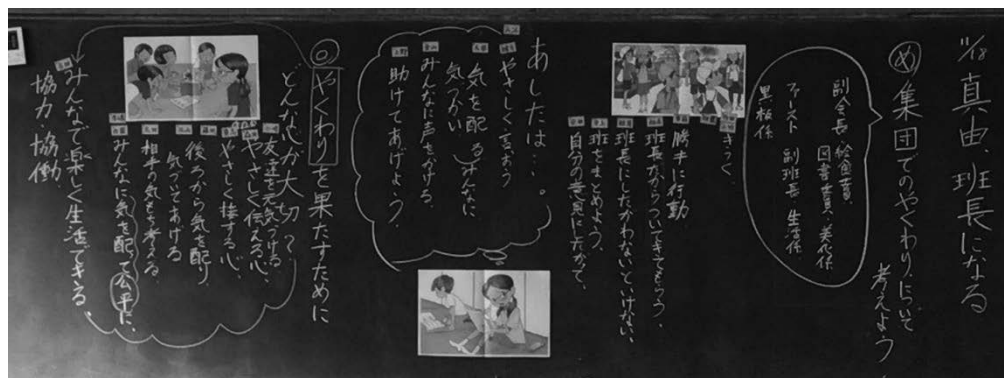 11/18 真由、班長になる
め 集団でのやくわりについて
考えよう
副会長 給食委員
図書委員 美化係
ファースト 副班長 生活係
黒板係
きつく
勝手に行動
班長だからついてきてもらう、
班長にしたがわないといけない
班をまとめよう、
自分の意見にしたがて、
あしたは…。
やさしく言おう
気を配る みんなに
気づかい
みんなに声をかける
助けてあげよう
◎やくわりを果たすために
どんな心が大切?
友達を元気づける
やさしく伝える心、
やさしく接する心、
後ろから気を配り
気づいてあげる
相手の気もち考える
みんなに気を配って公平に、
みんなで楽しく生活できる、
協力 協働、